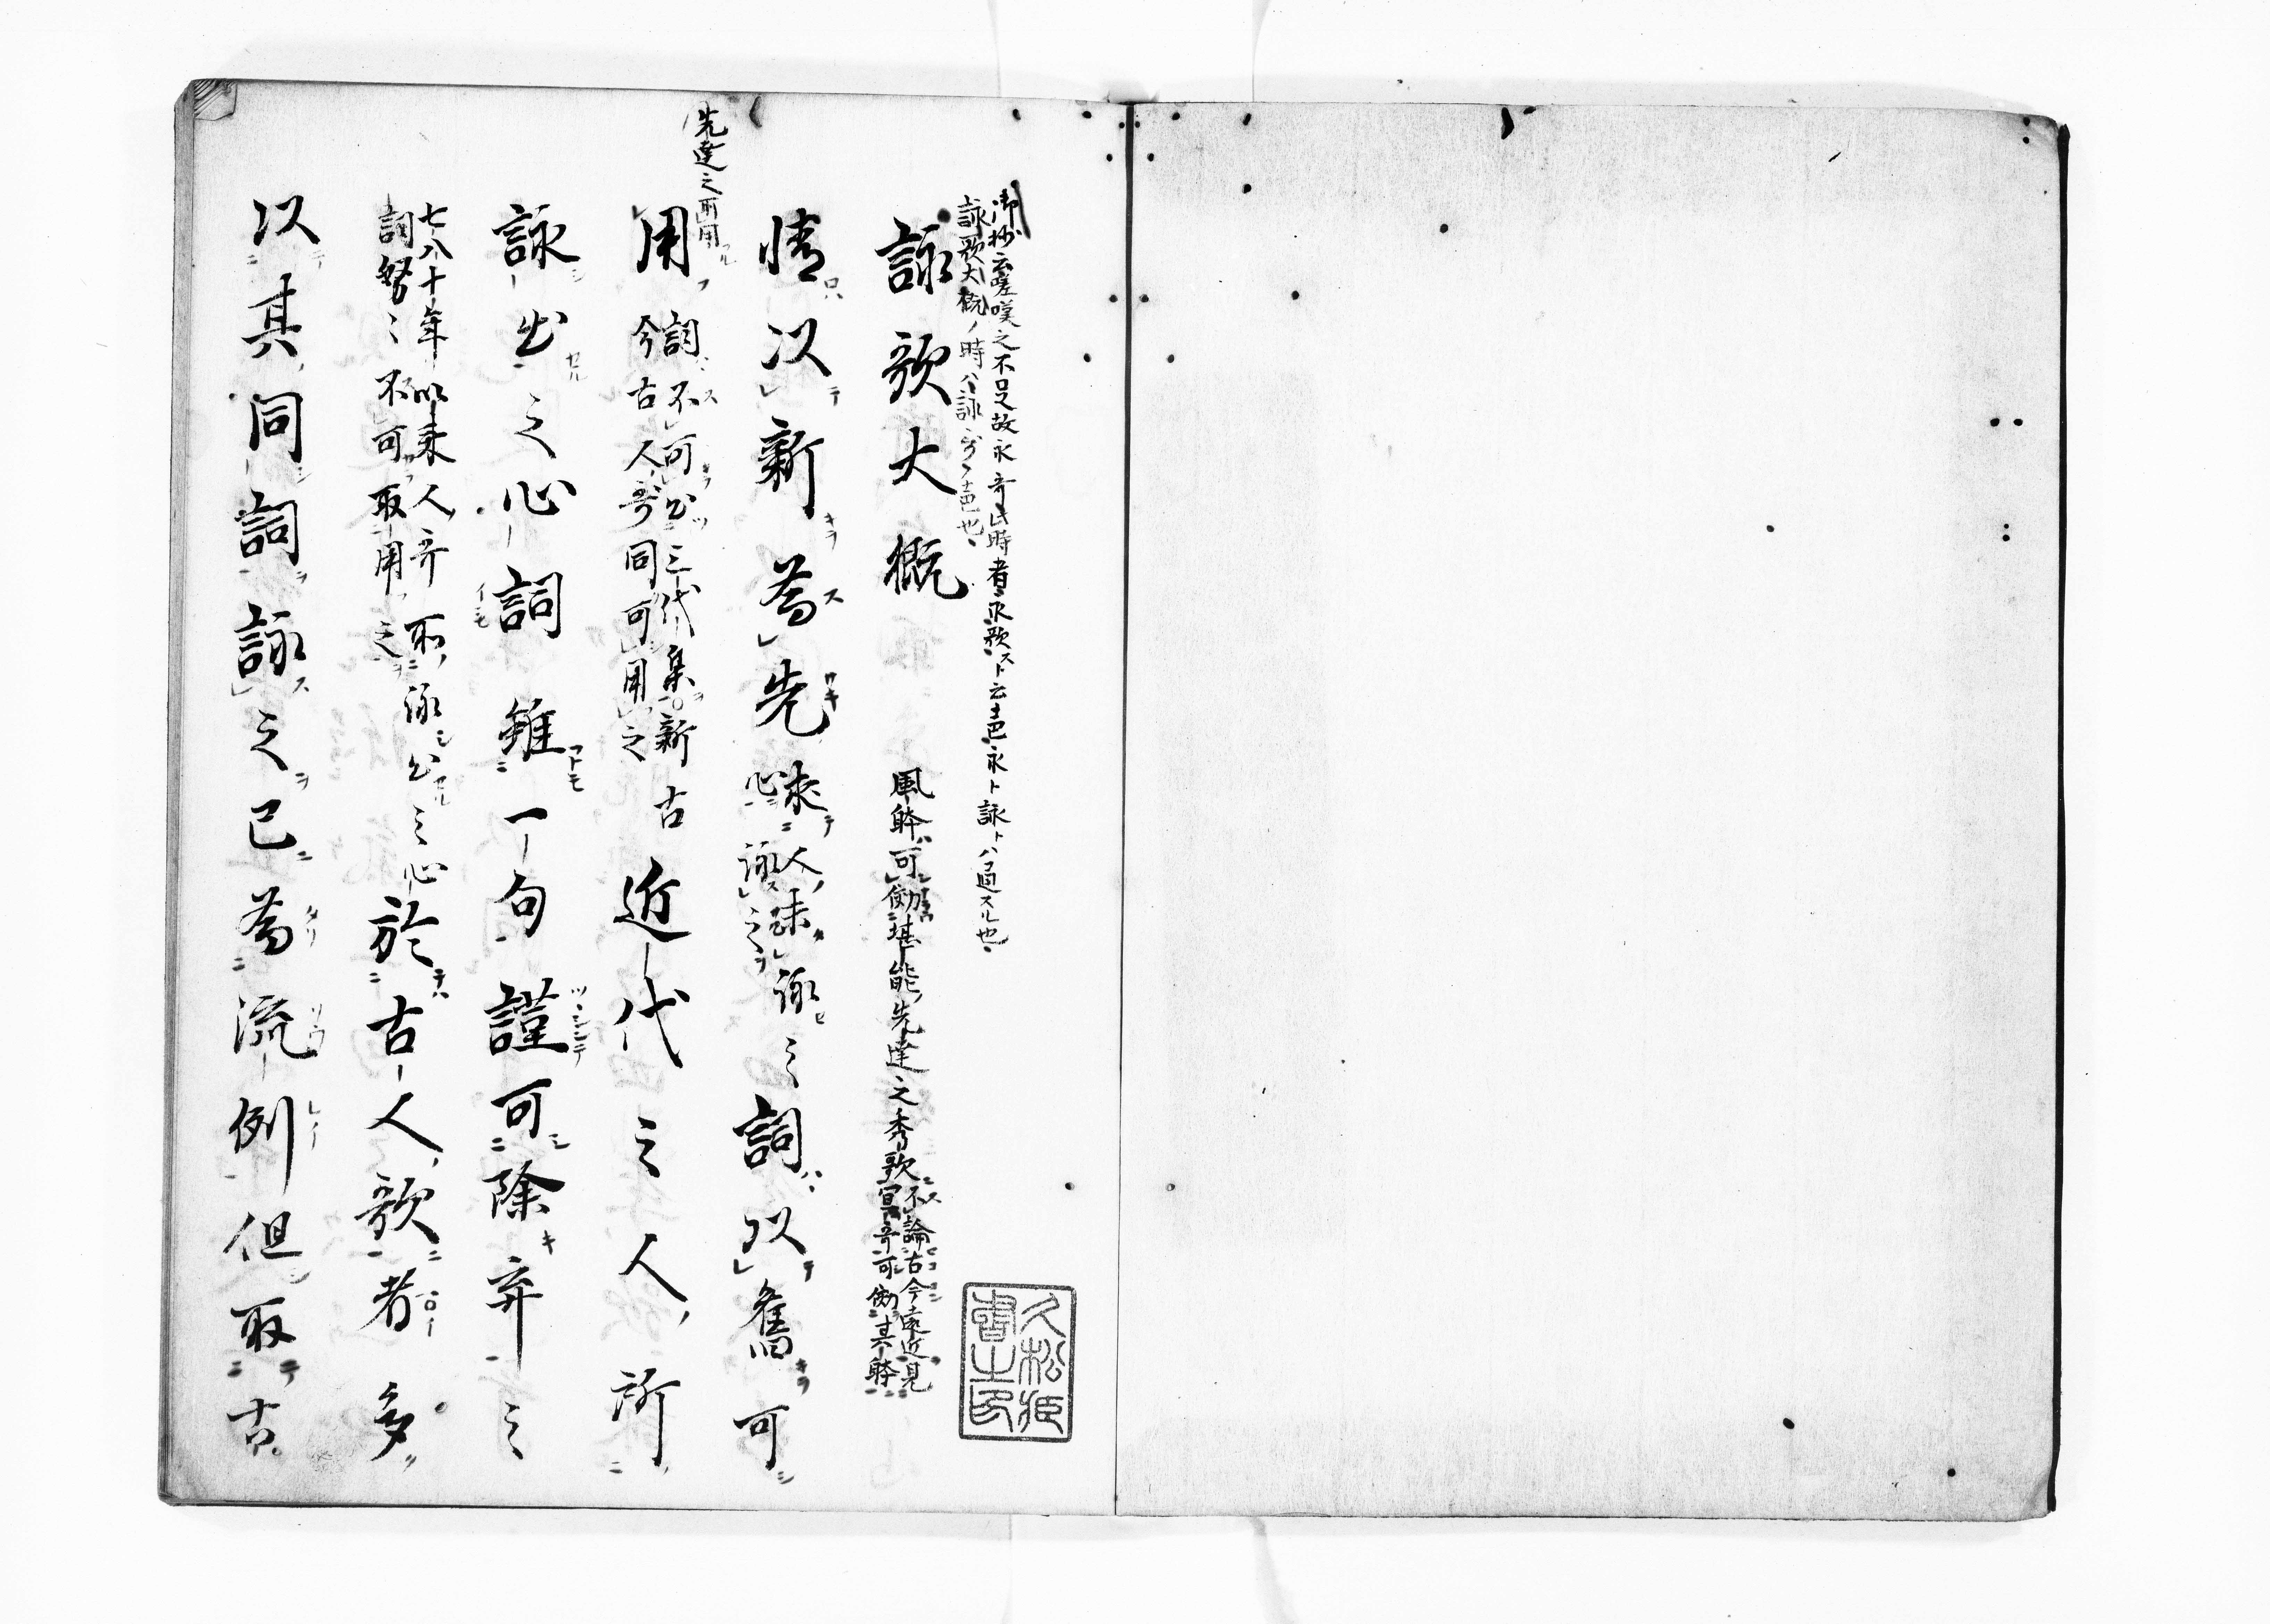 御抄云嗟嘆之不足故永哥此時者永歌スト云吉永ト詠トハ通スル也
詠歌大概ノ時ハ詠哥ノ吉也
詠歌大概
風躰可効堪能先達之秀歌
不論古今遠近見
宜哥可効其躰
情以新為先
求人未詠之
心詠之
詞以舊可
先達之所用
用
詞不可出三代集新古
今古人哥同可用之
近代之人所
詠出之心詞雖一句謹可除弃之
七八十年以来人哥所詠出之心
詞努々不可取用之
於古人歌者多
以其同詞詠之已為流例但取古